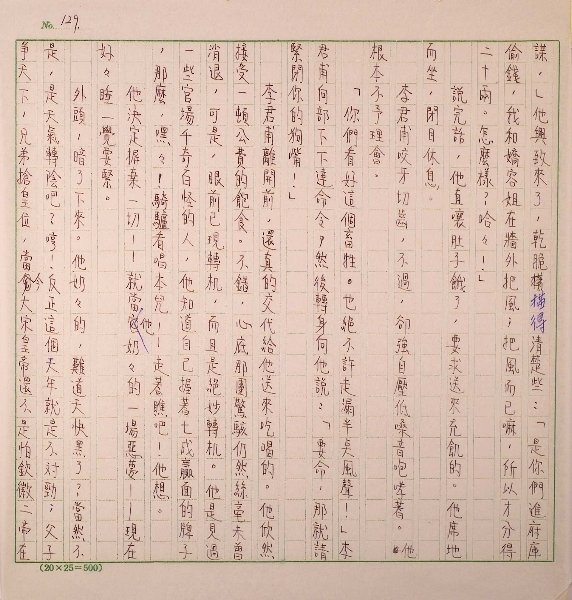 No. 129.
謀，」他興致來了，乾脆橫得清楚些：「是你們進府庫
偷錢，我和嬌容姐在牆外把風；把風而已嘛，所以才分得
二十兩。怎麼樣？哈々！」
說完話，他直嚷肚子餓了，要求送來充飢的。他席地
而坐，閉目休息。
李君甫咬牙切齒，不過，卻強自壓低嗓音咆哮著。他
根本不予理會。
「你們看好這個畜牲。也絕不許走漏半吳風聲！」李
君甫向部下下達命令？然後轉身向他說：「要命，那就請
緊閉你的狗嘴！」
李君甫離開前，還真的交代給他送來吃喝的。他欣然
接受一頓公費的飽食。不錯，心底那團驚駭仍然絲毫未曾
消退，可是，眼前已現轉机，而且是絕妙轉机。他是見過
一些官場千奇百怪的人，他知道自己握著七成贏面的牌子
，那麼，嘿々！騎驢看唱本兒！走著瞧吧！他想。
他決定摒棄一切！就當他奶々的一場惡夢！現在
好々睡一覺要緊。
外頭，暗了下來。他奶々的，難道天快黑了？當然不
是，是天氣轉陰吧？哼？反正這個天年就是不對勁；父子
爭天下，兄弟搶皇位，當今大宋皇帝還不是怕欽徽二帝在
(20×25=500)